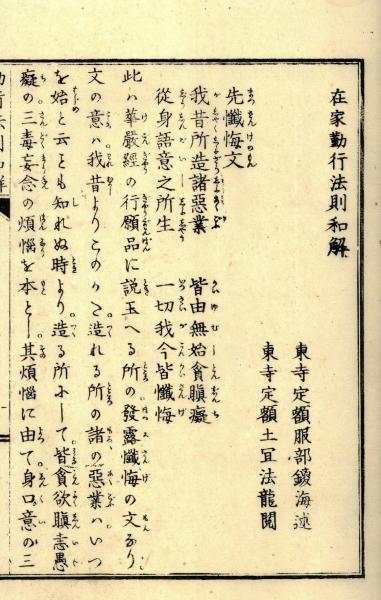 在家勤行法則和解
東寺定額服部鑁海述
東寺定額土宜法龍閲
先懺悔文
我昔所造諸惡業　皆由無始貪瞋癡
從身語意之所生　一切我今皆懺悔
此ハ華嚴經の行願品に説玉へる所の發露懺悔の文なり
文の意ハ我昔よりこのかた造れる所の諸の惡業ハいつ
を始と云とも知れぬ時より造る所にして皆貪欲瞋恚愚
癡の三毒妄念の煩惱を本とし其煩惱に由て身口意の三